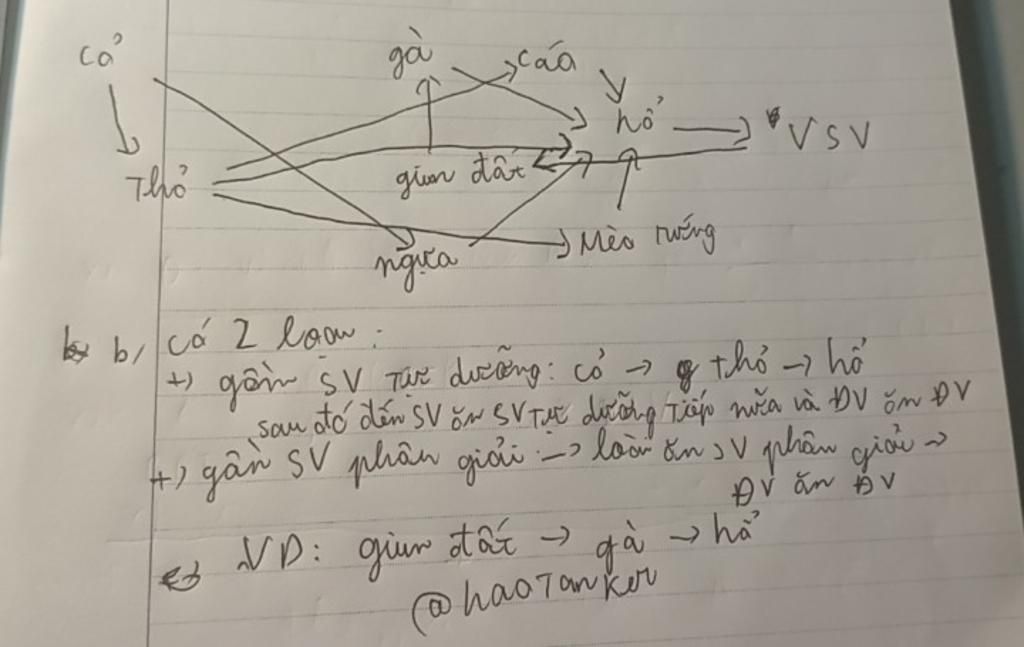 cỏ
gà
cáo
hổ
VSV
Thỏ
giun đất
ngựa
Mèo rừng
b, Có 2 loại:
+) gồm SV Tự dưỡng: cỏ → thỏ → hổ
sau đó đến SV ăn SV Tự dưỡng Tiếp nữa và ĐV ăn ĐV
+) gồm SV phân giải: → loài ăn SV phân giải →
ĐV ăn ĐV
VD: giun đất → gà → hổ
@haoTanker